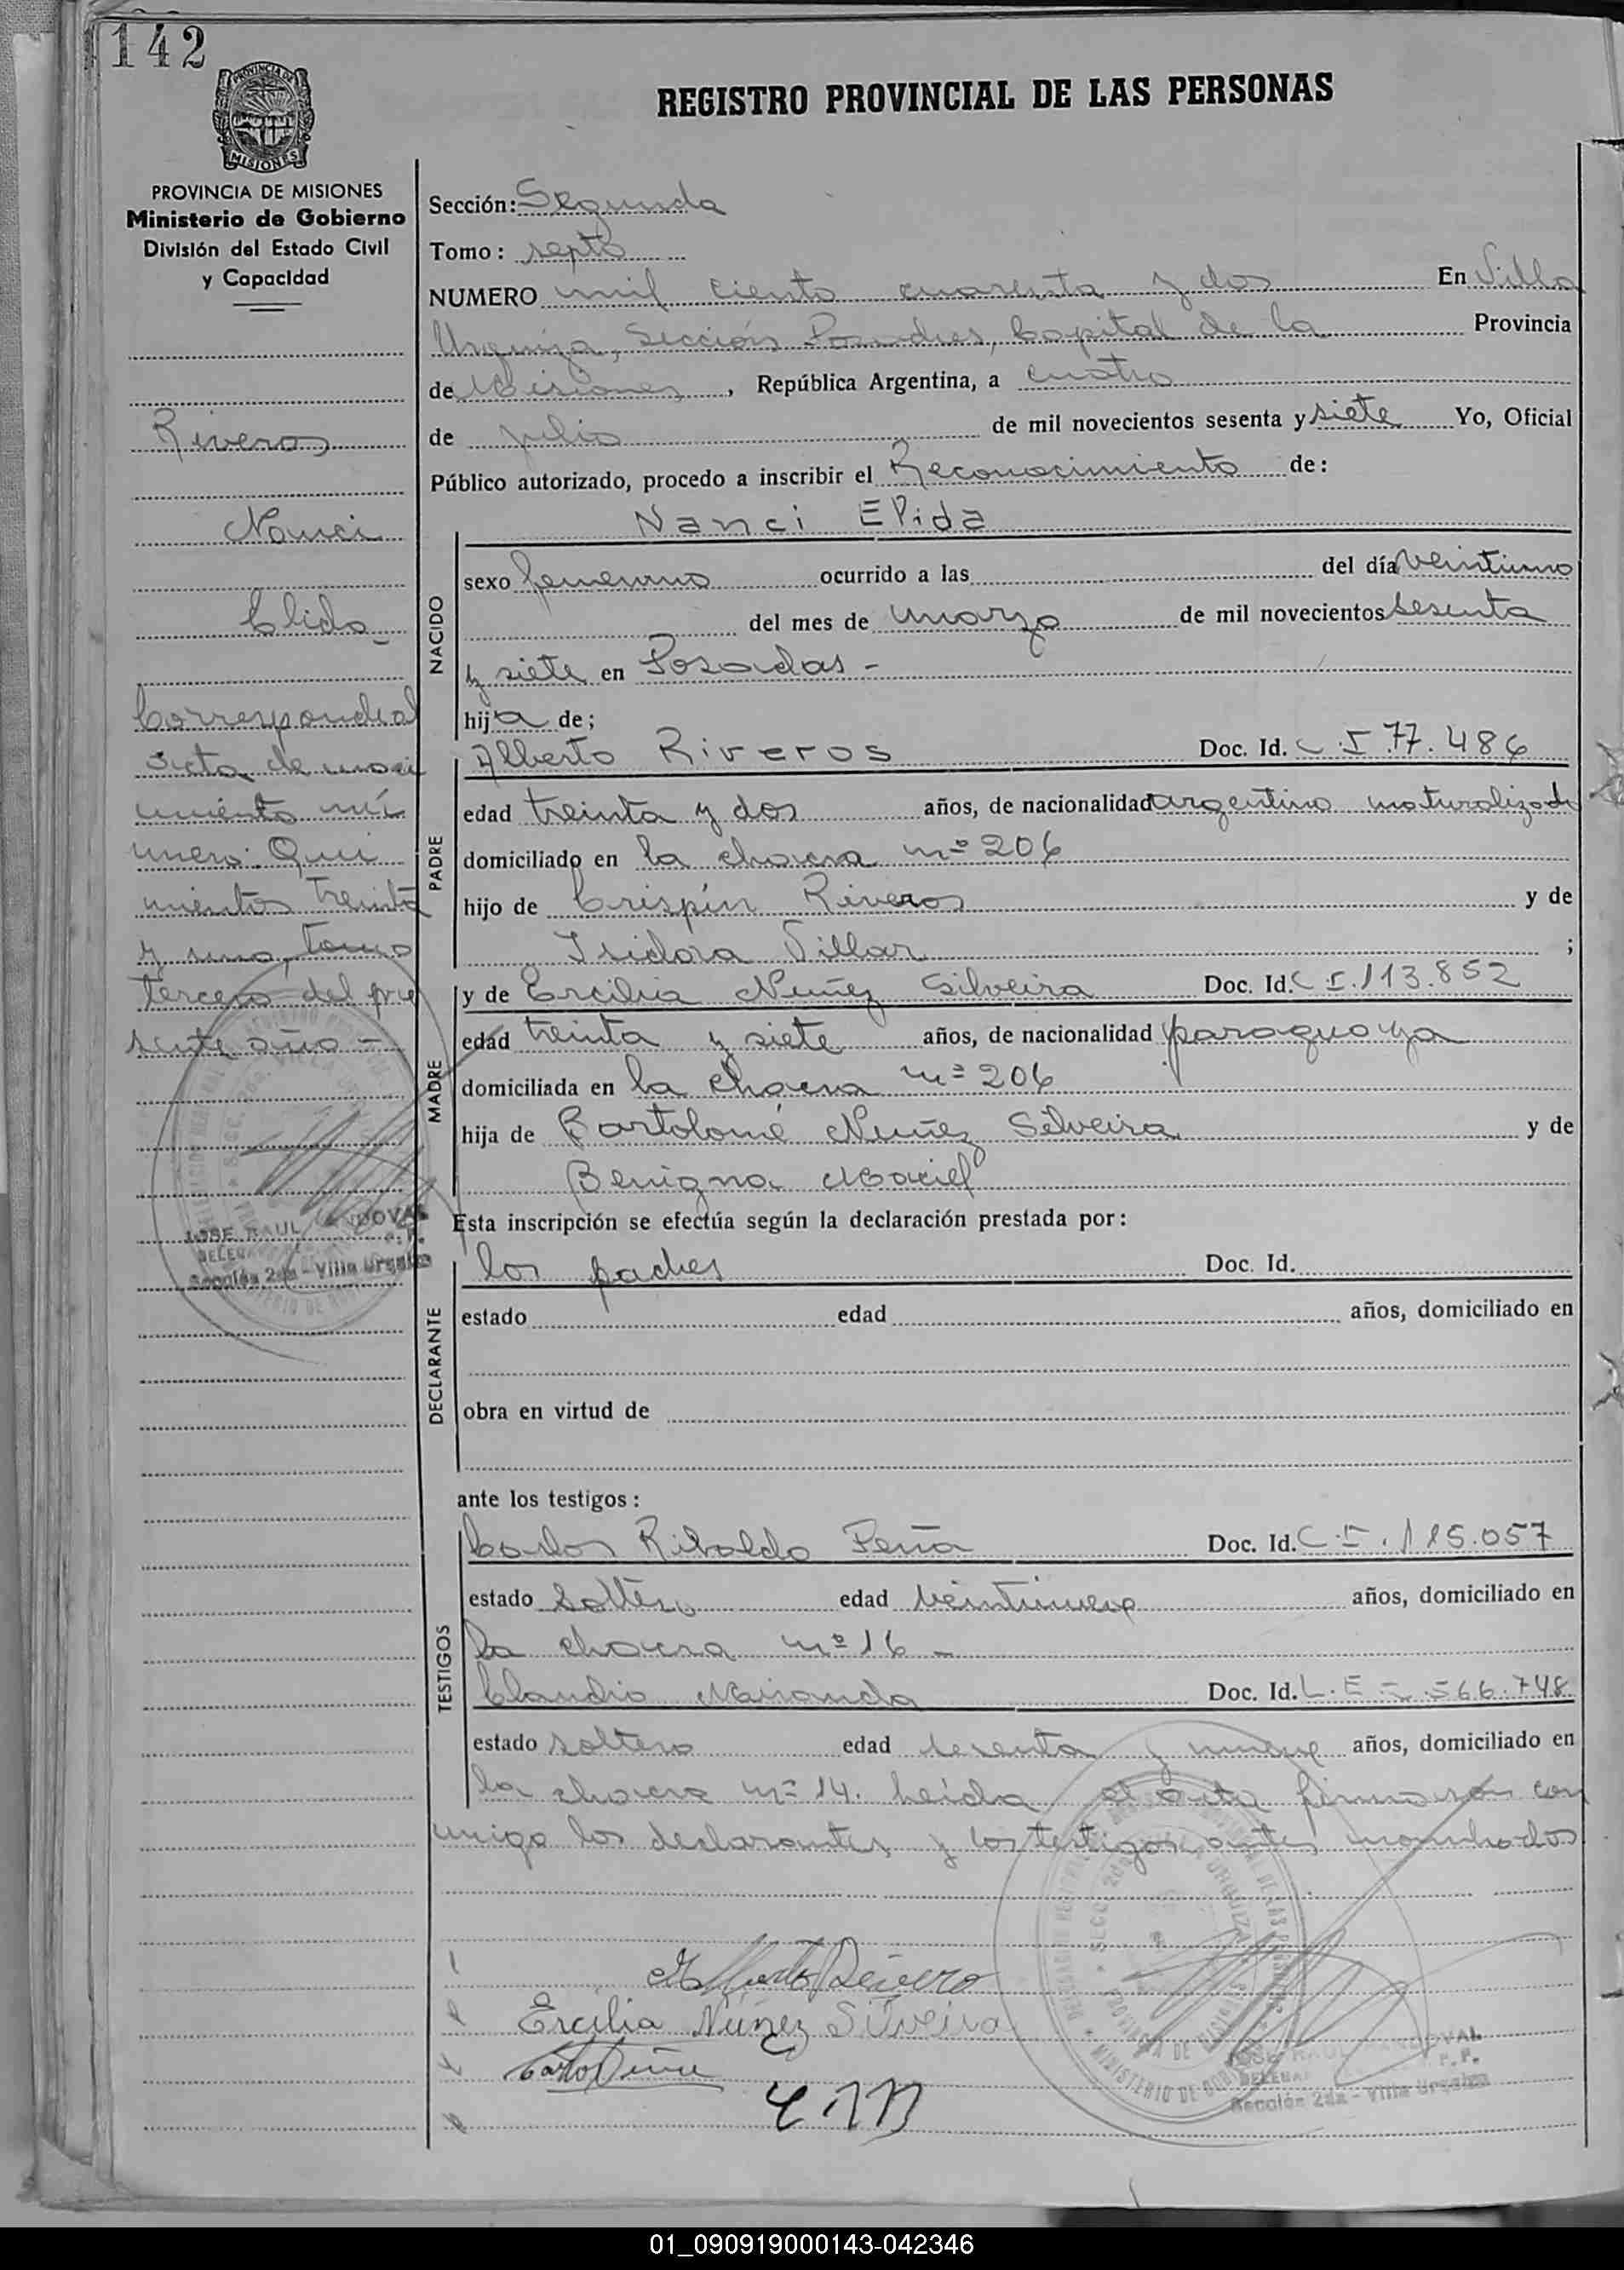 142
PROVINCIA DE
MISIONES
REGISTRO PROVINCIAL DE LAS PERSONAS
PROVINCIA DE MISIONES
Ministerio de Gobierno
División del Estado Civil
y Capacidad
Riveros
Nanci
Elida
Corresponde al
acta de naci
miento nú
mero: Qui
nientos treinta
y uno, tomo
tercero del pre
sente año -
JOSE RAUL
Sección 2da - Villa Urquiza
Sección: Segunda
Tomo: septo
NUMERO mil ciento cuarenta y dos En Villa
Urquiza, Sección Posadas, Capital de la Provincia
de Misiones, República Argentina, a cuatro
de julio de mil novecientos sesenta y siete Yo, Oficial
Público autorizado, procedo a inscribir el Reconocimiento de:
NACIDO
Nanci Elida
sexo femenino ocurrido a las del día veintiuno
del mes de marzo de mil novecientos sesenta
y siete en Posadas -
hija de;
PADRE
Alberto Riveros Doc. Id. C.I 77.486
edad treinta y dos años, de nacionalidad argentino naturalizado
domiciliado en la chacra nº 206
hijo de Crispín Riveros y de
Isidora Villar ;
MADRE
y de Ercilia Nuñez Silveira Doc. Id. C I. 113.852
edad treinta y siete años, de nacionalidad paraguaya
domiciliada en la chacra nº 206
hija de Bartolomé Nuñez Silveira y de
Benigna Maciel
Esta inscripción se efectúa según la declaración prestada por:
DECLARANTE
los padres Doc. Id.
estado edad años, domiciliado en
obra en virtud de
ante los testigos:
TESTIGOS
Carlos Peña Doc. Id. C.I. 115.057
estado soltero edad veintinueve años, domiciliado en
la chacra nº 16 -
Claudio Miranda Doc. Id. L.E 566.748
estado soltero edad y nueve años, domiciliado en
la chacra nº 14. Leída el acta firmaron con
migo los declarantes y los testigos antes nombrados
Alberto Rivero
Ercilia Núñez Silveira
Carlos Peña
Sección 2da - Villa Urquiza
01_090919000143-042346